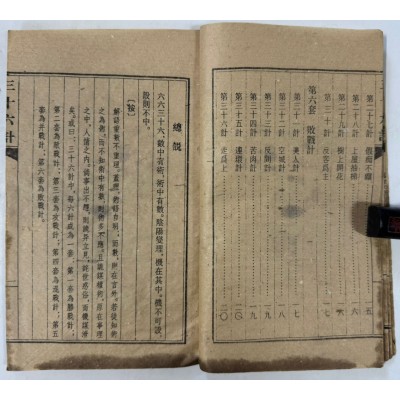 第二十七計 假痴不癲 五
第二十八計 上屋抽梯 六
第二十九計 樹上開花 六
第三十計 反客為主 一七
第六套 敗戰計
第三十一計 美人計 一七
第三十二計 空城計 一八
第三十三計 反間計 一九
第三十四計 苦肉計 一九
第三十五計 連環計 二〇
第三十六計 走為上 二〇
總說
六六三十六，數中有術，術中有數。陰陽燮理，機在其中。機不可設，
設則不中。
【按】
解語重數不重理。蓋理，術語自明；而數，則在言外。若徒知術
之為術，而不知術中有數，則術多不應。且詭謀權術，原在事理
之中，人情之內。倘事出不經，則詭異立見，詫世惑俗，而機謀洩
矣。或曰：三十六計中，每六計成為一套。第一套為勝戰計；
第二套為敵戰計；第三套為攻戰計；第四套為混戰計；第五
套為并戰計；第六套為敗戰計。
三十六計